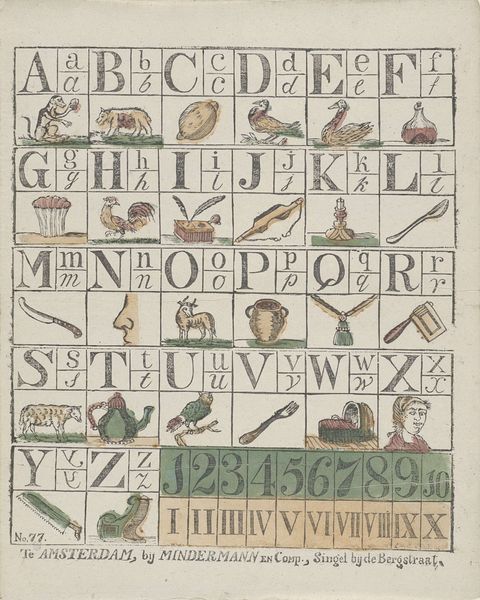 A a a B b b C c c D d d E e e F f f
G g g H h h I i i J j j K k k L l l
M m m N n n O o o P p p Q q q R r r
S s s T t t U u u V v v W w w X x x
Y y y Z z z 1 2 3 4 5 6 7 8 9 10
I II III IV V VI VII VIII IX X
No. 77.
Te AMSTERDAM, bij MINDERMANN EN Comp., Singel bij de Bergstraat.